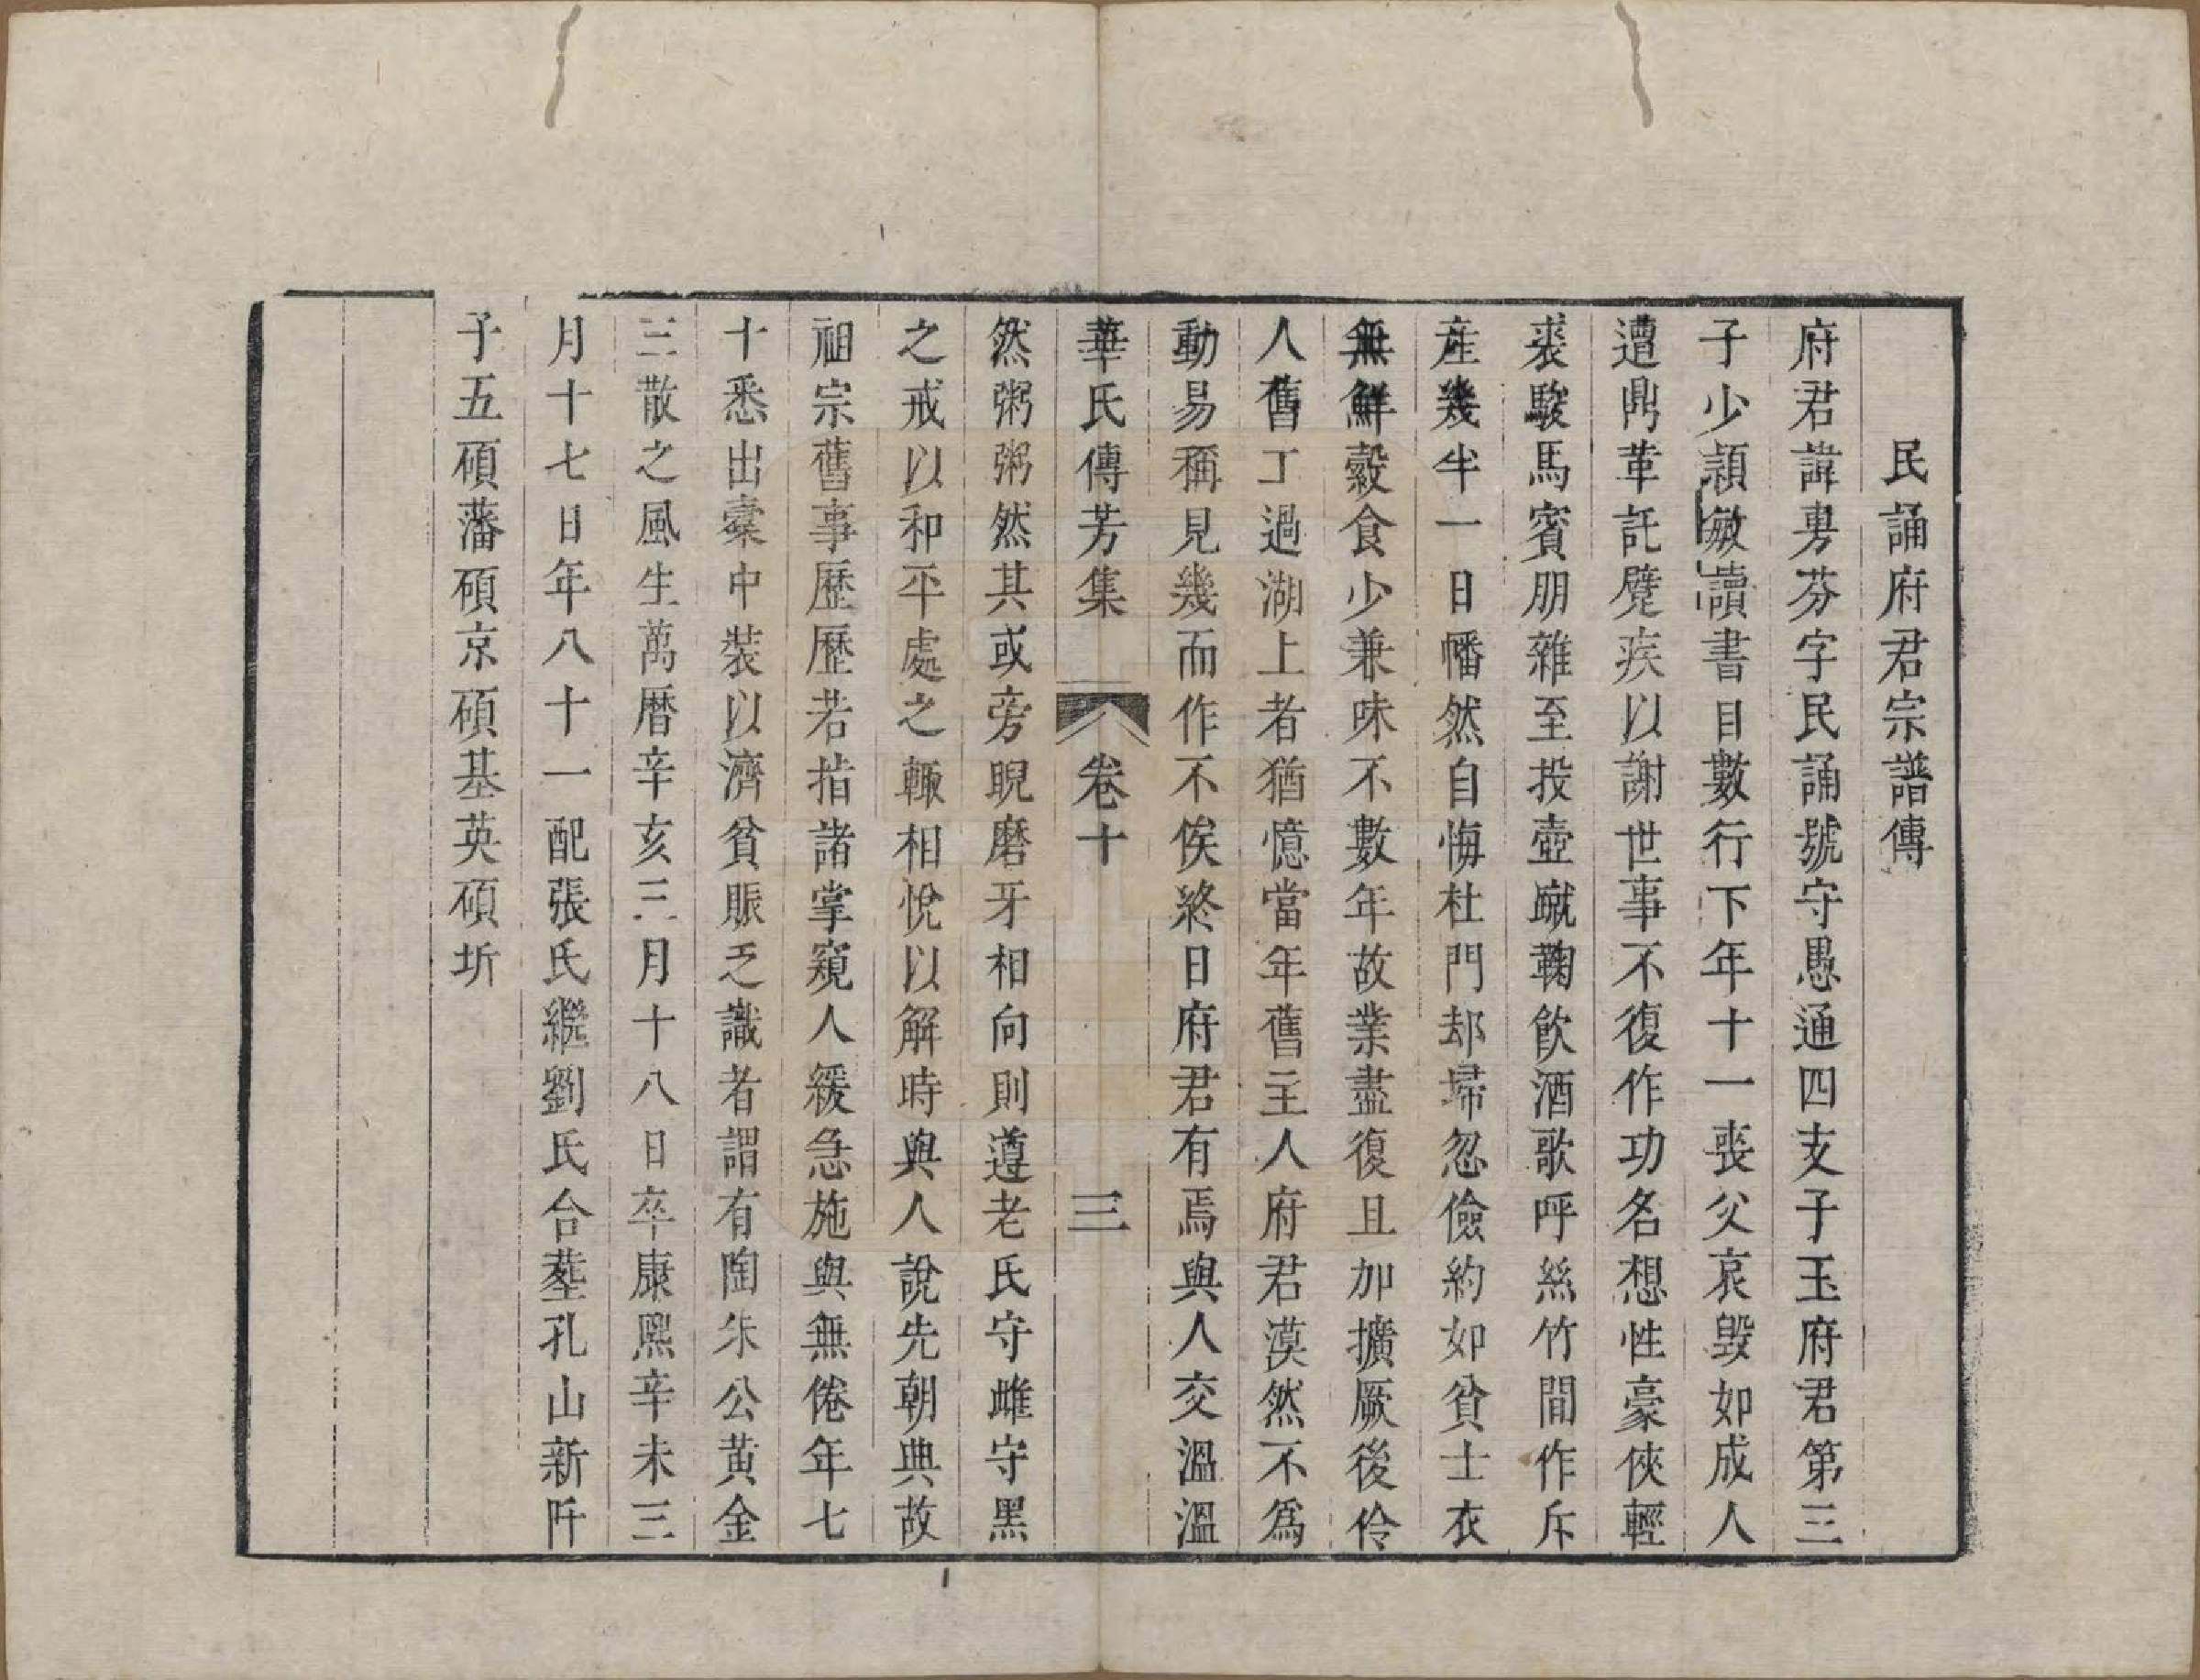 民誦府君宗譜傳
府君諱旉芬字民誦號守愚通四支子玉府君第三
子少穎敏讀書目數行下年十一喪父哀毀如成人
遭鼎革託躄疾以謝世事不復作功名想性豪俠輕
裘駿馬賓朋雜至投壺蹴鞠飲酒歌呼絲竹間作斥
産幾半一日幡然自悔杜門却埽忍儉約如貧士衣
無鮮縠食少兼味不數年故業盡復且加擴厥後伶
人舊丁過湖上者猶憶當年舊主人府君漠然不爲
動易稱見幾而作不俟終日府君有焉與人交溫溫
華氏傳芳集 卷十 三
然粥粥然其或旁睨磨牙相向則遵老氏守雌守黑
之戒以和平處之輒相悅以解時與人說先朝典故
祖宗舊事歷歷若指諸掌窺人緩急施與無倦年七
十悉出槖中裝以濟貧賑乏識者謂有陶朱公黃金
三散之風生萬曆辛亥三月十八日卒康熙辛未三
月十七日年八十一配張氏繼劉氏合塟孔山新阡
子五碩藩碩京碩基英碩圻